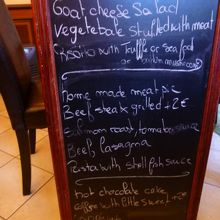 Goat cheese Salad
Vegetable stuffed with meat
Risotto with Truffle or sea food
or mushrooms
Home made meat pie
Beef steak grilled +2€
Salmon roast, tomato sauce
Beef Lasagna
Pasta with shellfish sauce
Hot chocolate cake
coffee with little sweet +2€